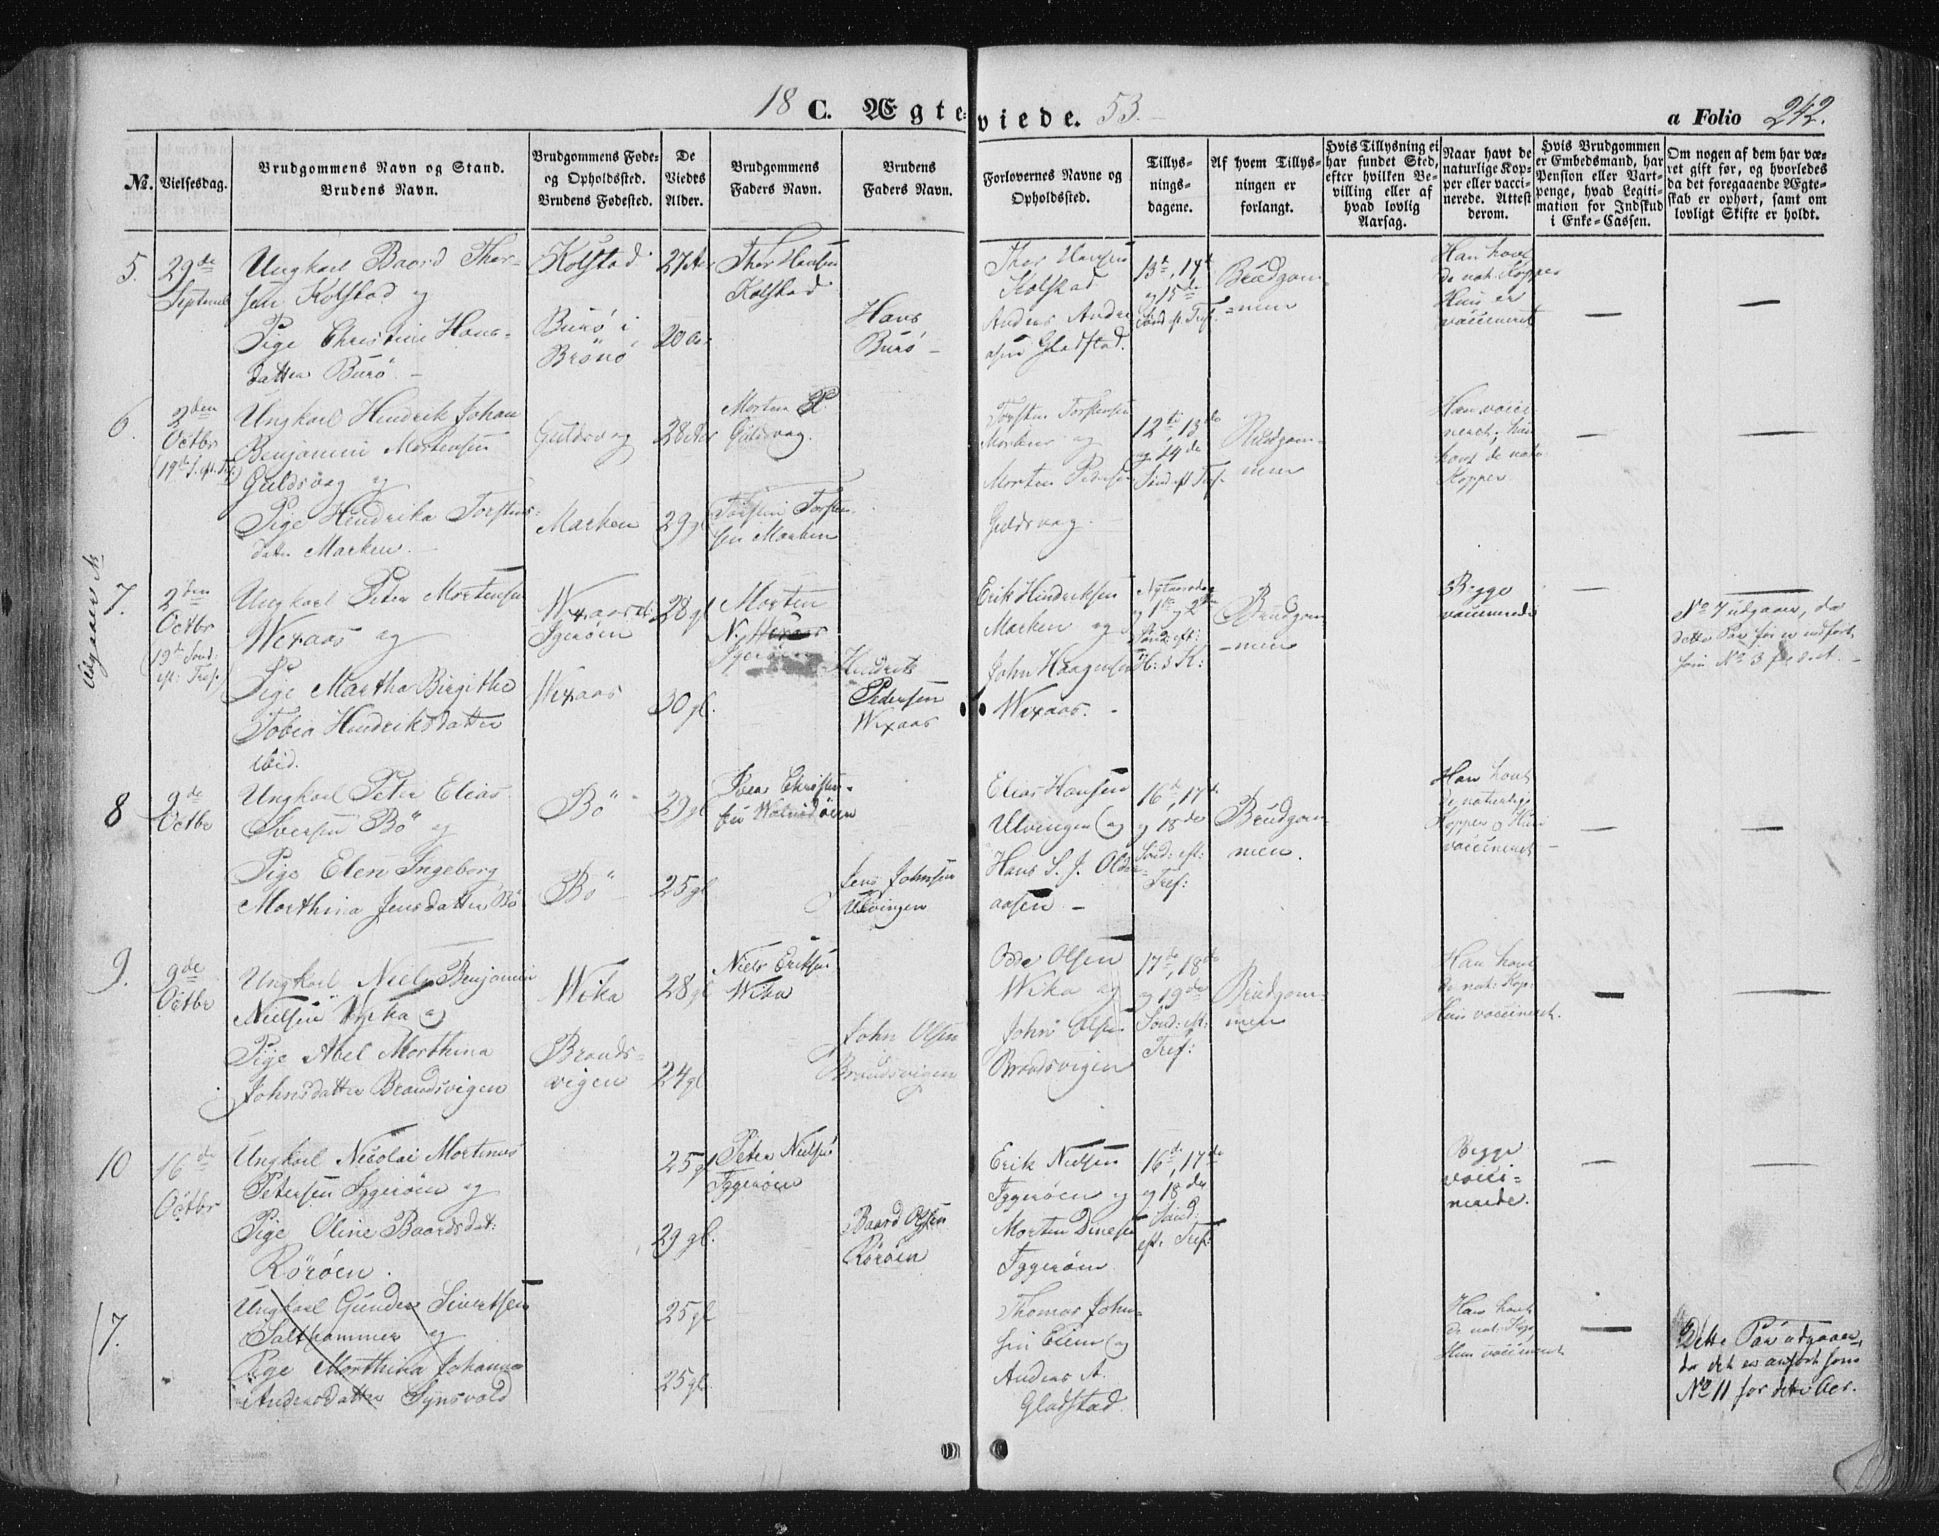 18 C. Ægte=viede. 53.
a Folio 242.
No.
Vielsesdag.
Brudgommens Navn og Stand.
Brudens Navn.
Brudgommens Føde=
og Opholdssted.
Brudens Fødested.
De
Viedes
Alder.
Brudgommens
Faders Navn.
Brudens
Faders Navn.
Forlovernes Navne og
Opholdssted.
Tillys=
nings=
dagene.
Af hvem Tillys=
ningen er
forlangt.
Hvis Tillysning ei
har fundet Sted,
efter hvilken Be=
villing eller af
hvad lovlig
Aarsag.
Naar havt de
naturlige Kop=
per eller vacci=
nerede. Attest
derom.
Hvis Brudgommen
er Embedsmand, har
Pension eller Vart=
penge, hvad Legiti=
mation for Indskud
i Enke=Cassen.
Om nogen af dem har væ=
ret gift før, og hvorledes
da det foregaaende Ægte=
skab er ophørt, samt om
lovligt Skifte er holdt.
5.
29de
Septemb
Ungkarl Baard Thor-
sen Kolstad og
Pige Christine Hans-
datter Burö -
Kolstad
Burö i
Brönö
27 Aar
20 Aar
Thor Hansen
Kolstad
Hans
Burö -
Thor Hansen
Kolstad
Anders Andre
asen Gladstad.
13de, 14de
og 15de
Sönd. ef. Tref.
Brudgom-
-men
Han havt
de nat. Kopper
Hun er
vaccineret
6.
2den
Octbr
(19de S. eft. Tref.)
Ungkarl Hendrik Johan
Benjamin Mortensen
Guldsvag og
Pige Hendrika Torstens=
datter Marken. -
Guldsvag
Marken
28 Aar
29 gl
Morten P.
Guldsvag.
Torsten Torsten
sen Marken
Torsten Torstensen
Marken og
Morten Pedersen
Guldsvag. -
12te, 13de
og 14de
Sönd. eft Tref.
Brudgom-
men
Han vacci
neret, hun
havt de nat.
Kopper
Udgaaer No
7.
2den
Octbr
19de Sönd.
eft: Tref.
Ungkarl Peter Mortensen
Wexaas og
Pige Martha Birgithe
Tobia Hendriksdatter
ibid.
Wexaas
Igeröen
Wexaas
28 gl
30 gl.
Morten
N. Wexaas
Igeröen
Hendrik
Pedersen
Wexaas
Erik Hendriksen
Marken og
John Haagensen
Wexaas. -
Nytaarsdag
og 1ste og 2den
Sönd: eft:
H: 3 K:
Brudgom-
-men
Begge
vaccinerede
No 7 udgaaer, da
dette Par før er indført
som No 3 for det. -
8
9de
Octbr
Ungkarl Peter Elias
Iversen Bö og
Pige Elen Ingeborg
Morthina Jensdatter Bö
Bö
Bö
29 gl
25 gl
Iver Christen-
sen
Jens Johnsen
Ulvingen
Elias Hansen
Ulvingen og
Hans S. J. Olde
aasen -
16de, 17de
og 18de
Sönd: eft:
Tref:
Brudgom-
men.
Han havt
de naturlige
Kopper og Hun
vaccineret
9.
9de
Octbr
Ungkarl Niels Benjamin
Nielsen Wika og
Pige Abel Morthina
Johnsdatter Brandsvigen
Wika
Brands-
vigen
28 gl
24 gl
Niels Eriksen
Wika
John Olsen
Brandsvigen
Olsen
Wika og
John Olsen
Brandsvigen
17de, 18de
og 19de
Sönd: eft:
Tref:
Brudgom-
men
Han havt
de nat: Kop:
Hun vaccineret.
10
16de
Octbr
Ungkarl Nicolai Mortinus
Petersen Iggeröen og
Pige Oline Baardsdat:
Röröen.
25 gl
29 gl.
Peter Nielsen
Iggeröen
Baard Olsen
Röröen
Erik Nielsen
Iggeröen og
Morten Dinesen
Iggeröen
16de, 17de
og 18de
Sönd.
eft: Tref:
Begge
vacci-
nerede.
7.
Ungkarl Gunder Sivertsen
Salthammer og
Pige Morthina Johanna
Andersdatter Synsvold
25 gl
25 gl.
Thomas John-
sen og
Anders A.
Gladstad.
Han havt
de nat: Kop.
Hun vaccineret
Dette Par udgaaer,
da det er anført som
No 11 for dette Aar.